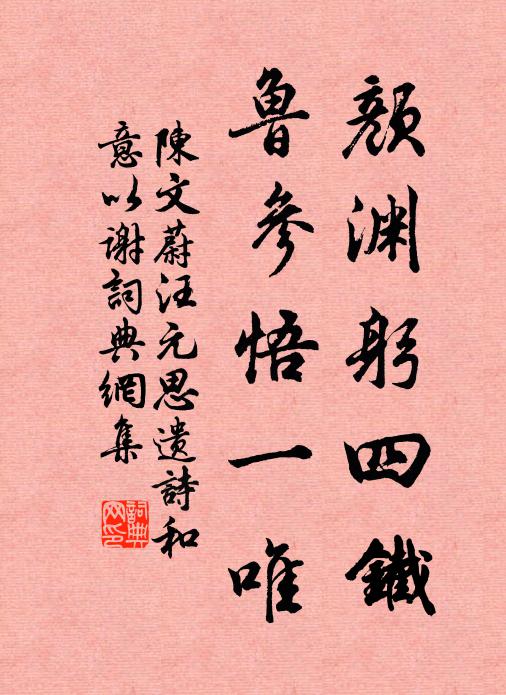 顏渊躬四鐵
魯參悟一唯
陳文蔚汪元思遺詩和
意以谢詞典網集
詞典
网印